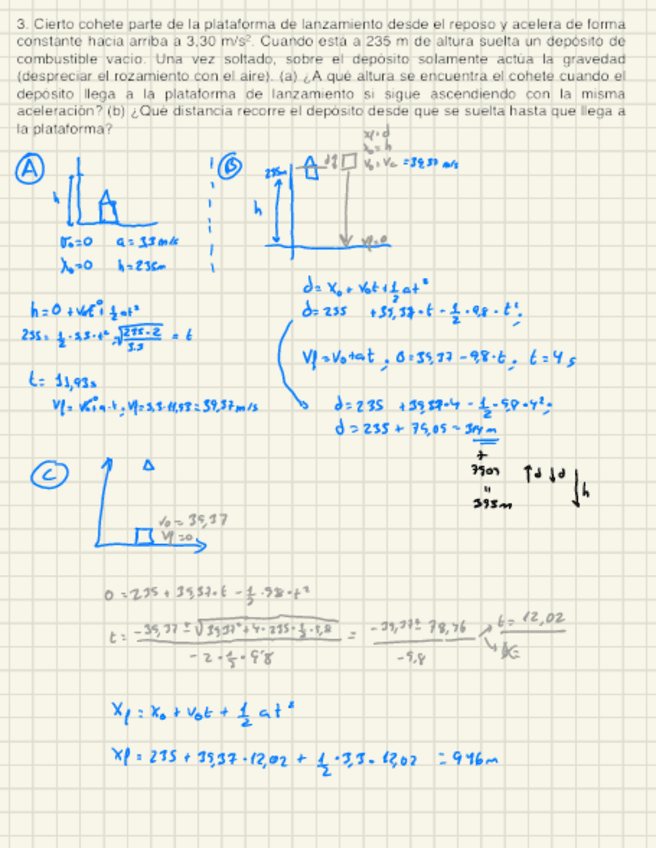 3. Cierto cohete parte de la plataforma de lanzamiento desde el reposo y acelera de forma
constante hacia arriba a 3,30 m/s². Cuando está a 235 m de altura suelta un depósito de
combustible vacío. Una vez soltado, sobre el depósito solamente actúa la gravedad
(despreciar el rozamiento con el aire). (a) ¿A qué altura se encuentra el cohete cuando el
depósito llega a la plataforma de lanzamiento si sigue ascendiendo con la misma
aceleración? (b) ¿Qué distancia recorre el depósito desde que se suelta hasta que llega a
la plataforma?
A
h
V₀=0 a=3,3 m/s
X₀=0 h=235m
h=0+V₀t+½at²
t=11,93s
B
xf=d
x₀=h
V₀=Vc =39,37 m/s
235m
h
Vf=0
d=X₀+V₀t+½at²
d=235 +39,37·t-½·9,8·t²;
Vf=V₀+at; 0=39,37-9,8·t; t=4s
d=235 +39,37·4-½·9,8·4²;
d=235+79,05=314m
+
79,05
"
393m
↑d ↓d ↓h
C
V₀=39,37
Vf=0
0=235+39,37·t-½·9,8·t²
t= = t=12,02
Xf=X₀+V₀t+½at²
Xf=235+39,37·12,02+½·3,3·12,02 =946m